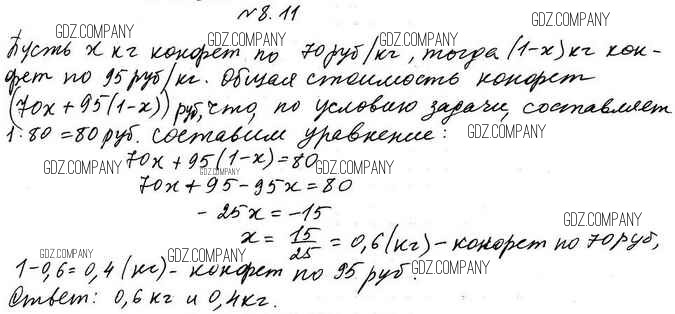 №8.11 GDZ.COMPANY
GDZ.COMPANY
Пусть x кг конфет по 70 руб/кг, тогда (1-x) кг кон-
GDZ.COMPANY
фет по 95 руб/кг. Общая стоимость конфет
GDZ.COMPANY
(70x + 95(1-x)) руб, что, по условию задачи, составляет
1·80 = 80 руб. составим уравнение:
GDZ.COMPANY GDZ.COMPANY
70x + 95(1-x) = 80
GDZ.COMPANY GDZ.COMPANY GDZ.COMPANY
70x + 95 - 95x = 80
- 25x = -15
GDZ.COMPANY
x = 15/25 = 0,6 (кг) - конфет по 70 руб,
GDZ.COMPANY GDZ.COMPANY
1-0,6 = 0,4 (кг) - конфет по 95 руб.
GDZ.COMPANY
Ответ: 0,6 кг и 0,4 кг.